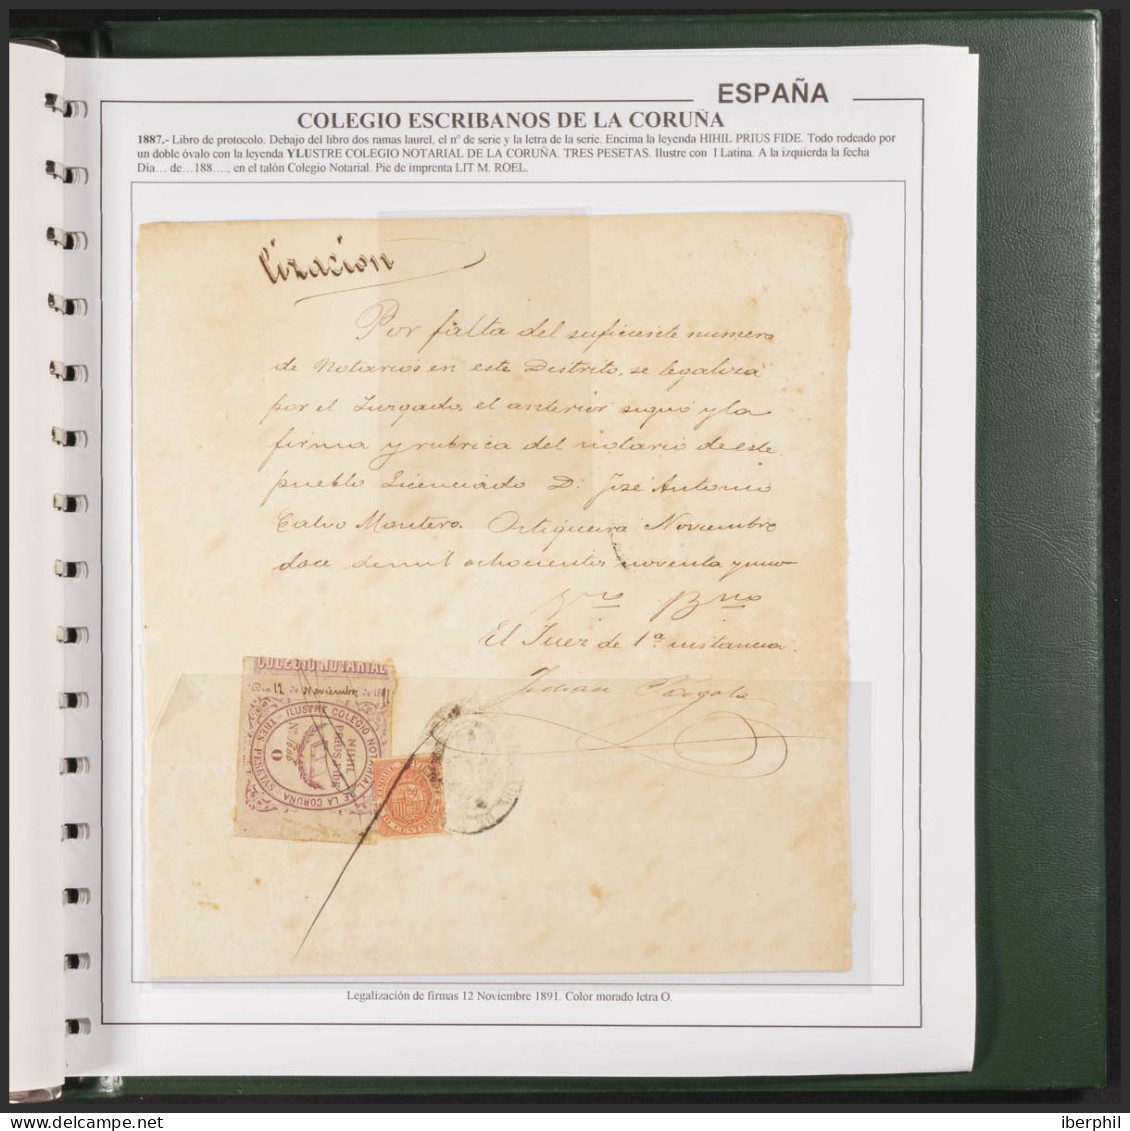 ESPAÑA
COLEGIO ESCRIBANOS DE LA CORUÑA
1887.- Libro de protocolo. Debajo del libro dos ramas laurel, el nº de serie y la letra de la serie. Encima la leyenda HIHIL PRIUS FIDE. Todo rodeado por
un doble óvalo con la leyenda YLUSTRE COLEGIO NOTARIAL DE LA CORUÑA. TRES PESETAS. Ilustre con I Latina. A la izquierda la fecha
Día… de…188…., en el talón Colegio Notarial. Pie de imprenta LIT M. ROEL.
Por falta del suficiente numero
de Notarios en este Distrito, se legaliza
por el Juzgado, el anterior signo y la
firma y rubrica del notario de este
pueblo Licenciado D. José Antonio
Calvo Montero. Ortigueira Noviembre
doce de mil ochocientos noventa y uno
Vto Bno
El Juez de 1ª instancia.
COLEGIO NOTARIAL
Dia 12 de Noviembre de 189
ILUSTRE COLEGIO NOTARIAL DE LA CORUÑA
TRES PESETAS
NIHIL
PRIUS FIDE
O
10 CENTIMOS
Legalización de firmas 12 Noviembre 1891. Color morado letra O.
iberphil